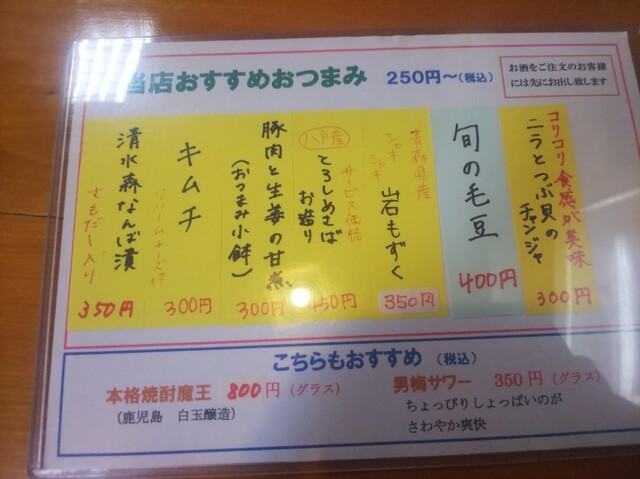 当店おすすめおつまみ 250円～(税込)
お酒をご注文のお客様
には先にお出し致します
コリコリ食感が美味
ニラとつぶ貝の
チャンジャ
300円
旬の毛豆
400円
青森県産
シャキシャキ
岩もずく
350円
サービス価格
八戸産
とろしめさば
お造り
450円
豚肉と生姜の甘煮
(おつまみ小鉢)
300円
キムチ
クリームチーズ付
300円
清水森なんば漬
さもだし入り
350円
こちらもおすすめ (税込)
本格焼酎魔王 800円(グラス)
(鹿児島 白玉醸造)
男梅サワー 350円(グラス)
ちょっぴりしょっぱいのが
さわやか爽快